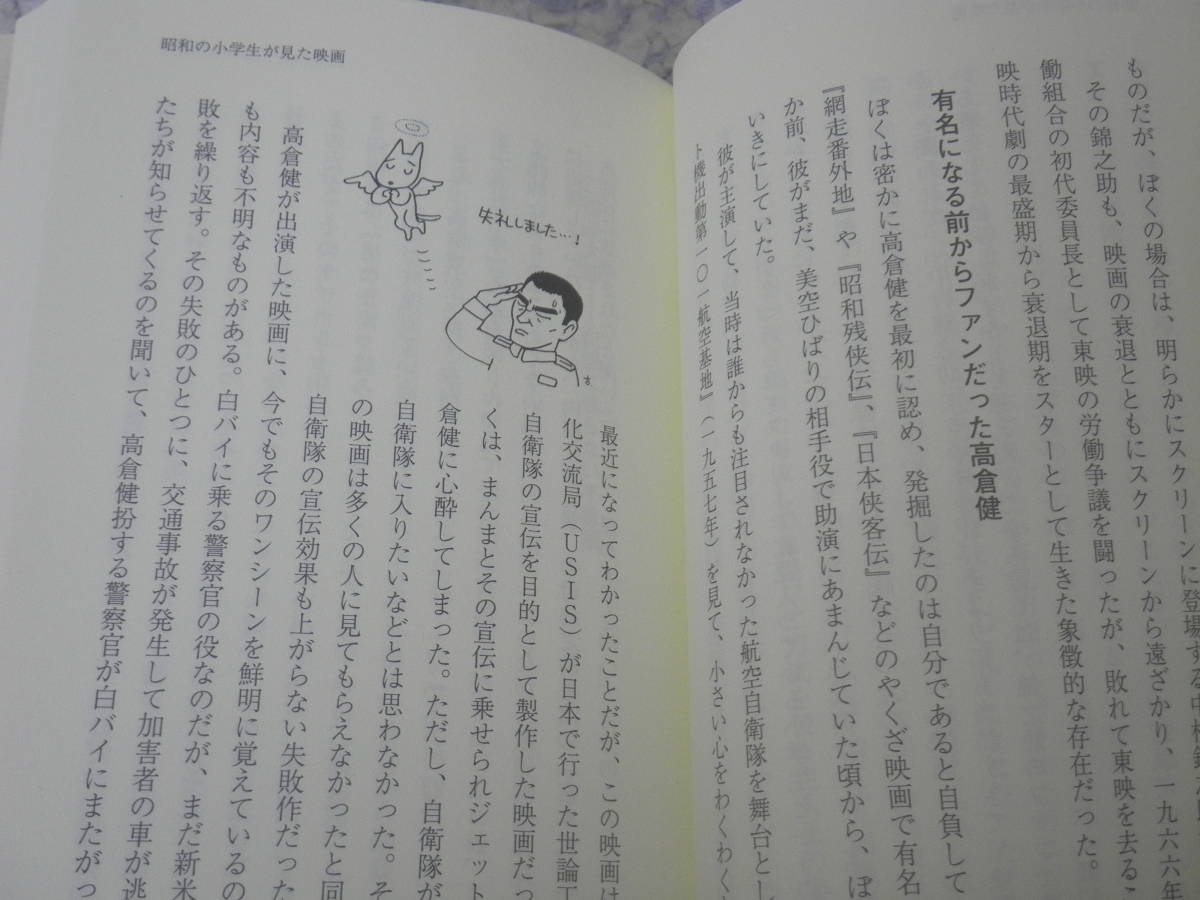 ものだが、ぼくの場合は、明らかにスクリーンに登場する
その錦之助も、映画の衰退とともにスクリーンから遠ざかり、一九六六年
働組合の初代委員長として東映の労働争議を闘ったが、敗れて東映を去るこ
映時代劇の最盛期から衰退期をスターとして生きた象徴的な存在だった。
有名になる前からファンだった高倉健
ぼくは密かに高倉健を最初に認め、発掘したのは自分であると自負して
『網走番外地』や『昭和残侠伝』、『日本侠客伝』などのやくざ映画で有名
か前、彼がまだ、美空ひばりの相手役で助演にあまんじていた頃から、ぼ
いきにしていた。
彼が主演して、当時は誰からも注目されなかった航空自衛隊を舞台とし
ト機出動第一〇一航空基地』（一九五七年）を見て、小さい心をわくわく
昭和の小学生が見た映画
失礼しました…！
最近になってわかったことだが、この映画は
化交流局（USIS）が日本で行った世論工
自衛隊の宣伝を目的として製作した映画だっ
くは、まんまとその宣伝に乗せられジェット
倉健に心酔してしまった。ただし、自衛隊が
自衛隊に入りたいなどとは思わなかった。そ
の映画は多くの人に見てもらえなかったと同
自衛隊の宣伝効果も上がらない失敗作だった
高倉健が出演した映画に、今でもそのワンシーンを鮮明に覚えているの
も内容も不明なものがある。白バイに乗る警察官の役なのだが、まだ新米
敗を繰り返す。その失敗のひとつに、交通事故が発生して加害者の車が逃
たちが知らせてくるのを聞いて、高倉健扮する警察官が白バイにまたがっ